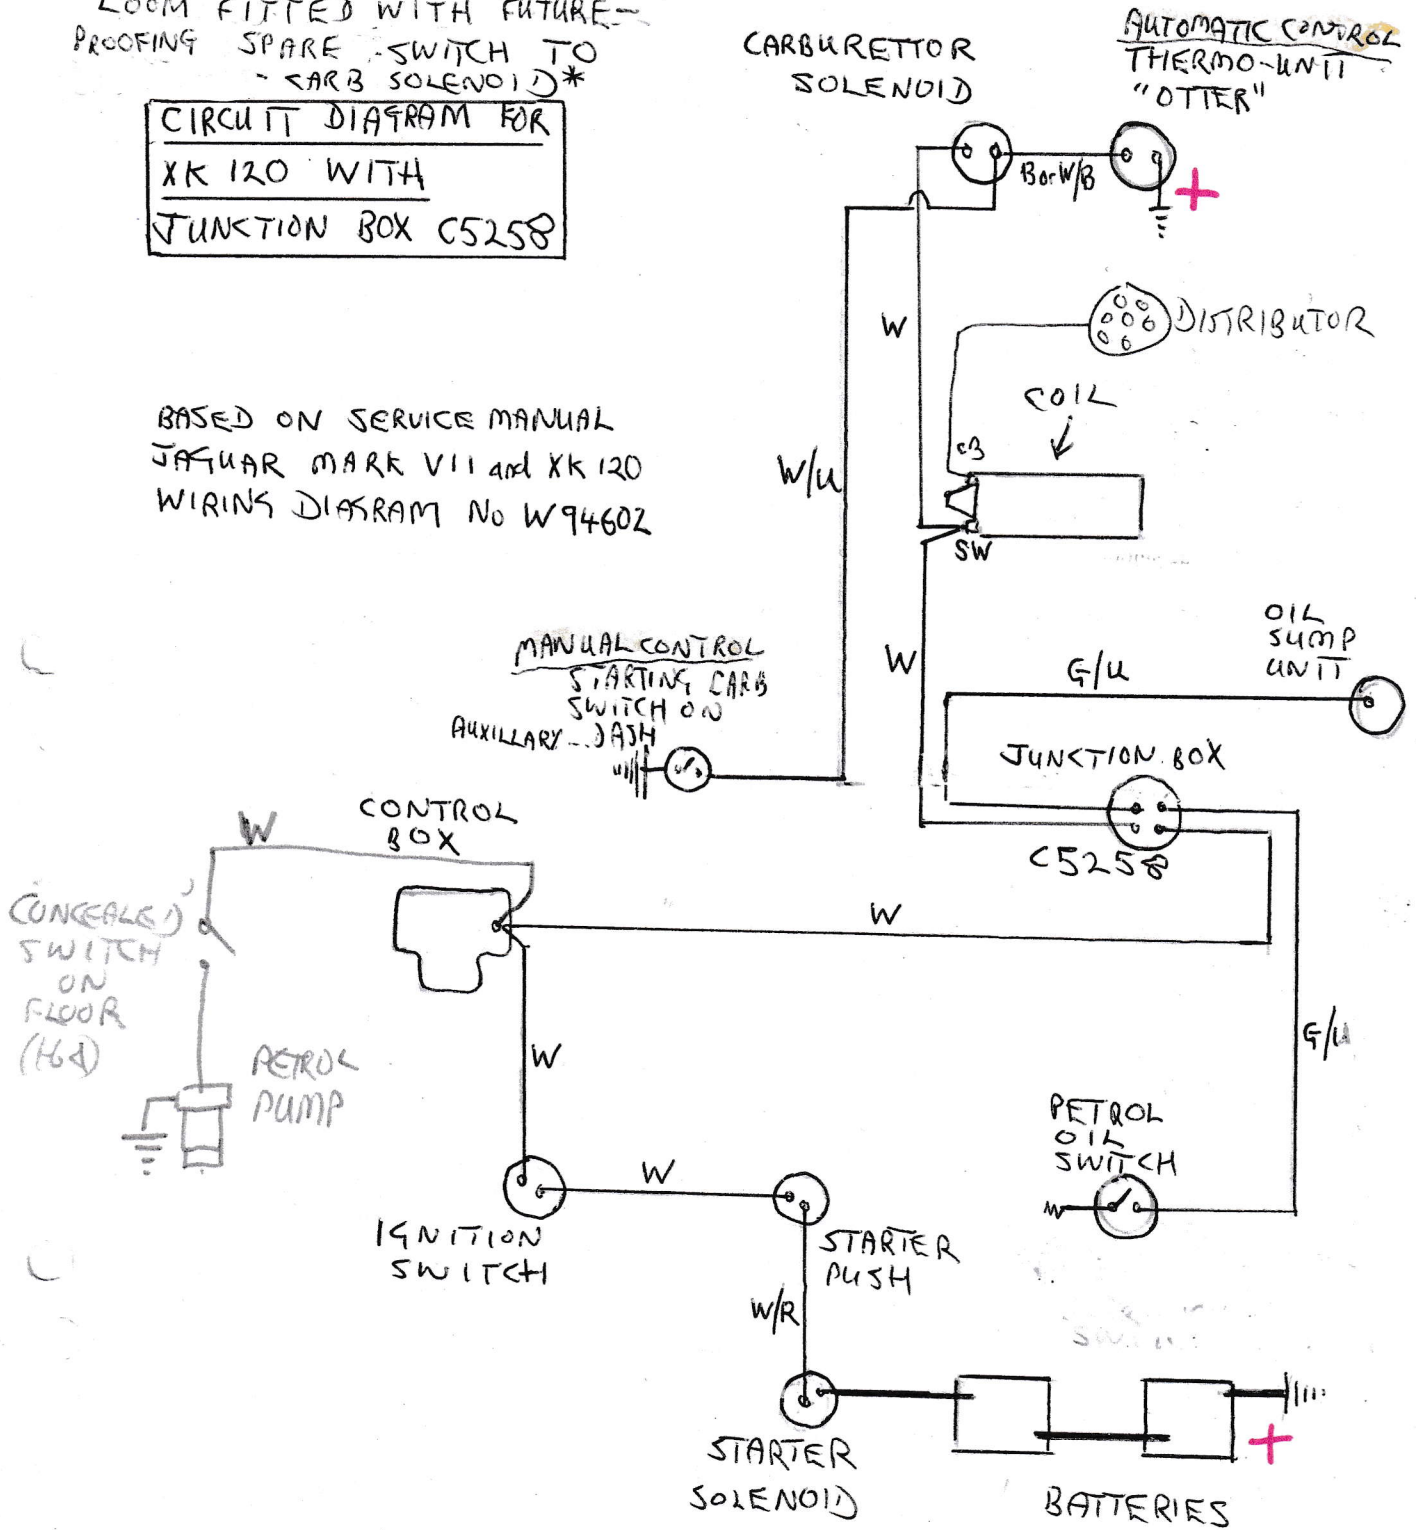 LOOM FITTED WITH FUTURE-
PROOFING SPARE SWITCH TO
CARB SOLENOID*
CIRCUIT DIAGRAM FOR
XK 120 WITH
JUNCTION BOX C5258
CARBURETTOR
SOLENOID
AUTOMATIC CONTROL
THERMO-UNIT
"OTTER"
B or W/B
+
W
DISTRIBUTOR
COIL
CB
SW
BASED ON SERVICE MANUAL
JAGUAR MARK VII and XK 120
WIRING DIAGRAM No W94602
W/U
W
MANUAL CONTROL
STARTING CARB
SWITCH ON
AUXILLARY DASH
G/U
OIL
SUMP
UNIT
JUNCTION BOX
C5258
CONTROL
BOX
W
'CONCEALED'
SWITCH
ON
FLOOR
W
PETROL
PUMP
W
G/U
PETROL
OIL
SWITCH
IGNITION
SWITCH
W
STARTER
PUSH
W/R
STARTER
SOLENOID
BATTERIES
+